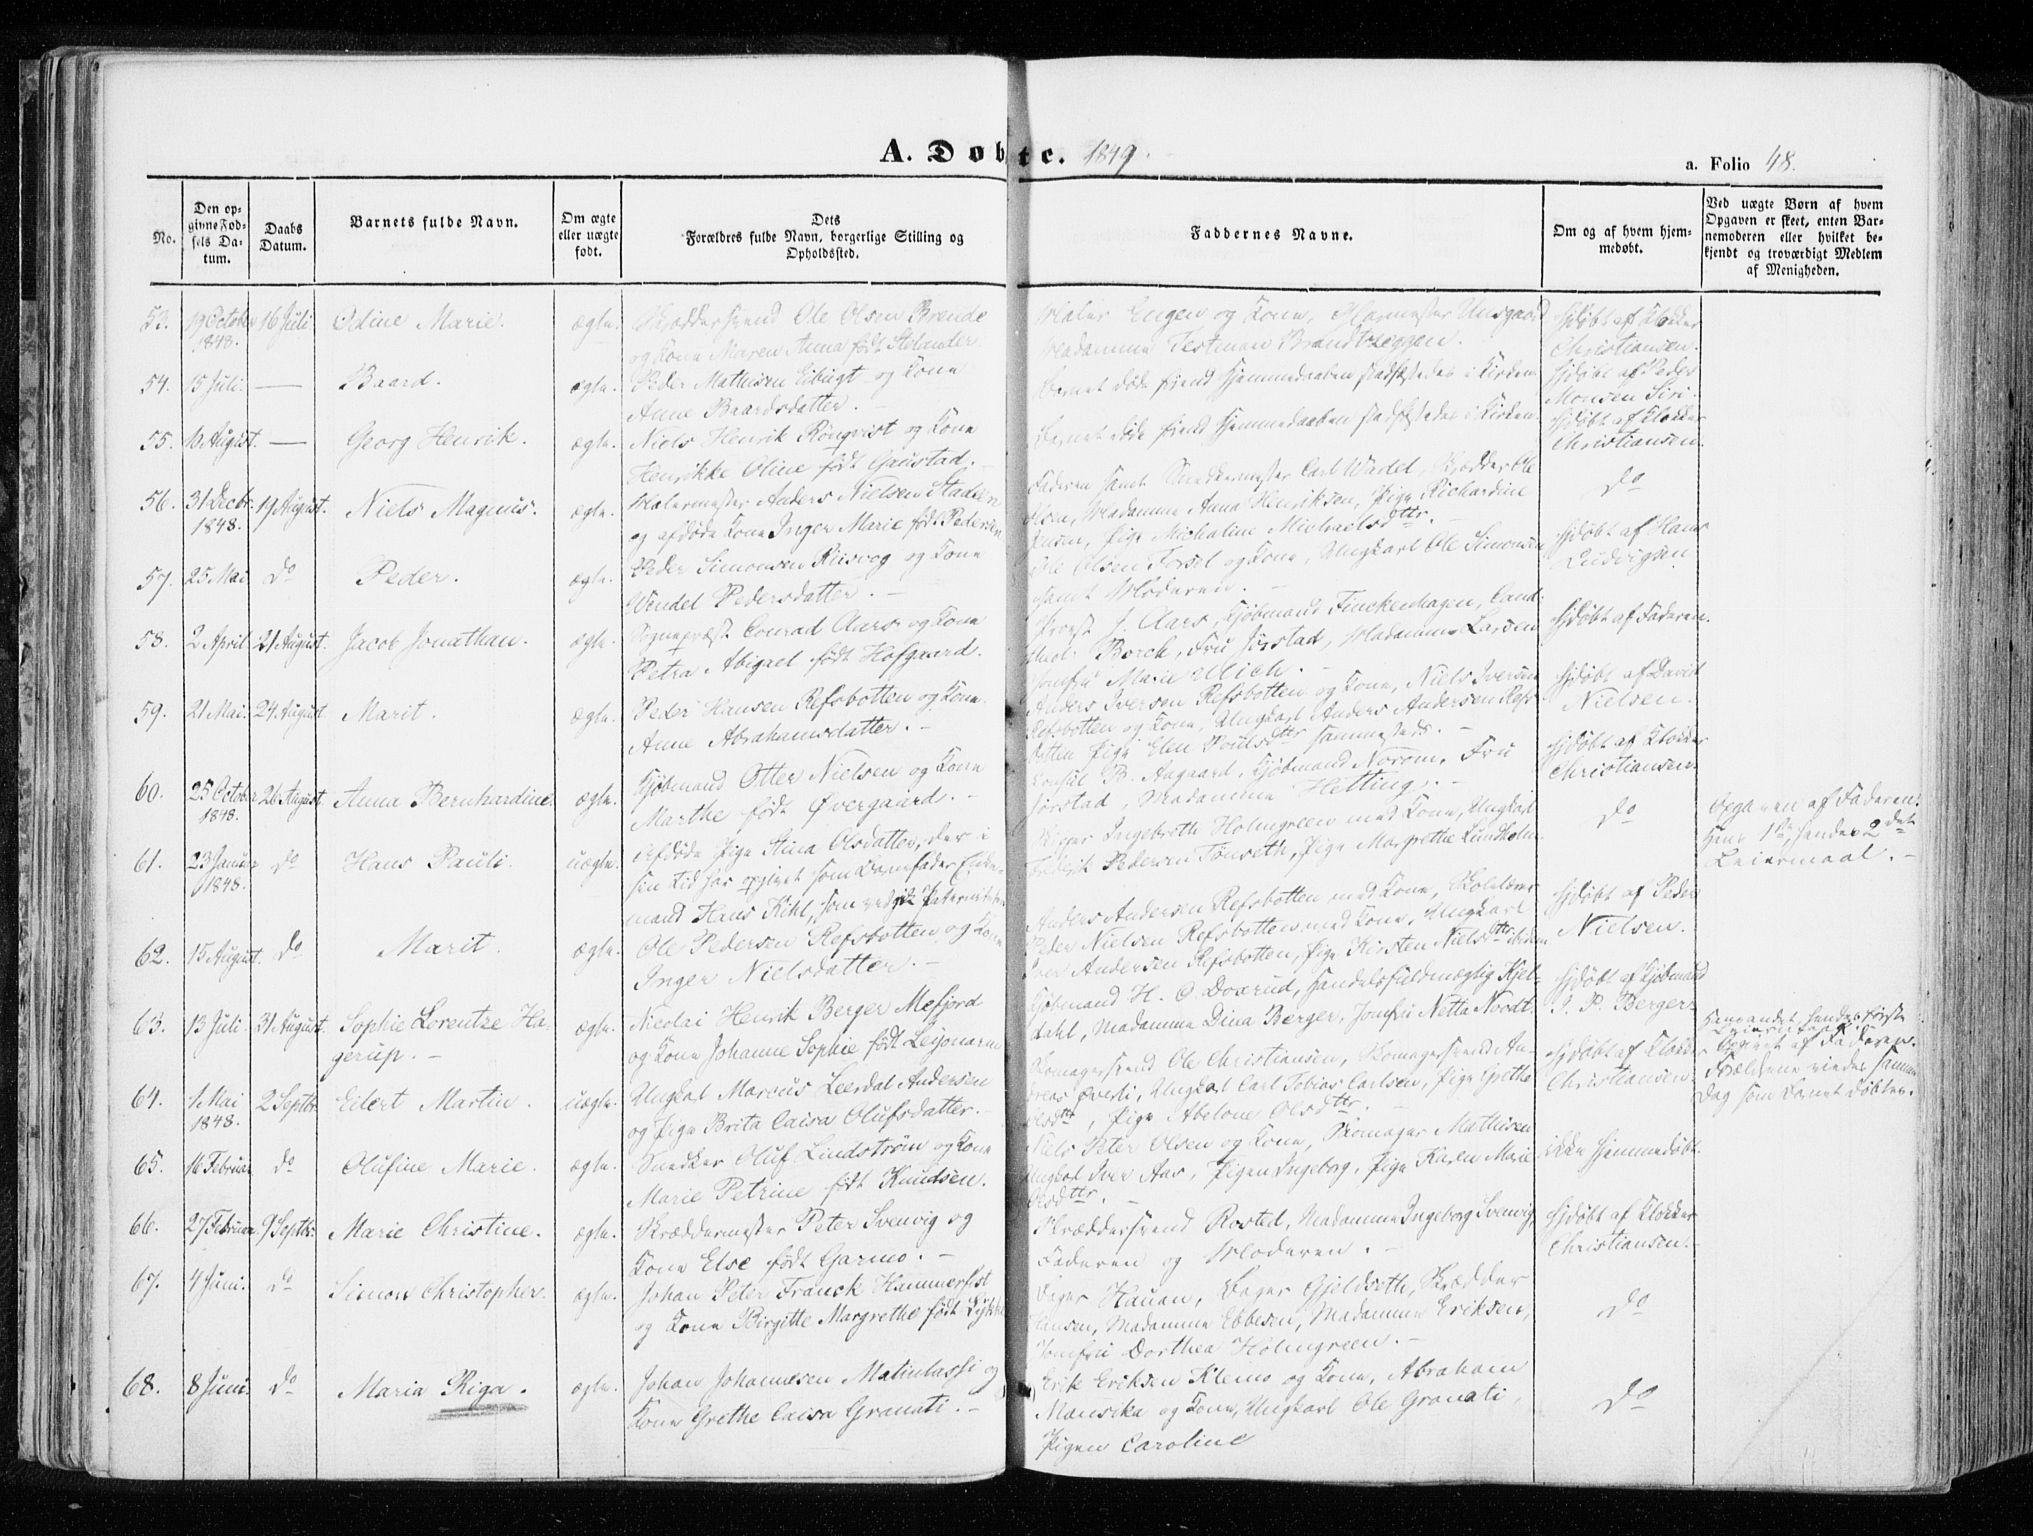 A. Døbte. 1849.
a. Folio 48.
No.
Den opgivne Fødsels Datum.
Daabs Datum.
Barnets fulde Navn.
Om ægte eller uægte født.
Dets Forældres fulde Navn, borgerlige Stilling og Opholdssted.
Faddernes Navne.
Om og af hvem hjemmedøbt.
Ved uægte Børn af hvem Opgaven er skeet, enten Barnemoderen eller hvilket bekjendt og troværdigt Medlem af Menigheden.
53. 19 October 1848. 16 Juli Odine Marie. ægte. Skræddersvend Ole Olsen Brende
og Kone Maren Anna født
Maler Engen og Kone,
Madamme Testman Brandtzeggen.
Hjdøbt af Klokker
Christiansen.
54. 15 Juli. — Baard. ægte. Peder Mathisen Eibugt og Kone
Anne Baardsdatter. —
Barnet døde førend Hjemmedaaben stadfæstedes i Kirken.
Hjdøbt af Peder
Monsen Siri.
55. 10 August. — Georg Henrik. ægte. Niels Henrik Rönqvist og Kone
Henrikke Oline født Gaustad. —
Barnet døde førend Hjemmedaaben stadfæstedes i Kirken.
Hjdøbt af Klokker
Christiansen.
56. 31 Decbr. 1848. 19 August. Niels Magnus. ægte. Malermester Anders Nielsen Stadsen
og afdøde Kone Inger Marie født Pedersen
Faderen samt Snedkermester Carl Wadel, Skrædder Ole
Olsen, Madamme Anna Henriksen, Pige Richardine
Jensen, Pige Michaline Michaelsdttr. —
Do
57. 25 Mai Do Peder. ægte. Peder Simonsen Riisvog og Kone
Wendel Pedersdatter. —
Ole Olsen Forsol og Kone, Ungkarl Ole Simonsen
samt Moderen. —
Hjdøbt af Hans
Ludvigsen.
58. 2 April 21 August. Jacob Jonathan. ægte. Sognepræst Conrad Aars og Kone
Petra Abigael født Hofgaard.
Provst J. Aars, Kjøbmand Finckenhagen, Cand:
Med: Borch, Fru Jørstad, Madamme Larsen
Jomfru Marie Ulich. —
Hjdøbt af Faderen.
59. 21 Mai. 24 August Marit. ægte. Peder Hansen Refsbotten og Kone
Anne Abrahamsdatter. —
Anders Iversen Refsbotten og Kone, Niels Iversen
Refsbotten og Kone, Ungkarl Anders Andersen Refs-
botten Pige Elen Poulsdttr sammesteds. —
Hjdøbt af David
Nielsen.
60. 25 October 1848. 26 August. Anna Bernhardine. ægte. Kjøbmand Otter Nielsen og Kone
Marthe født Øvergaard. —
Consul B. Aagaard, Kjøbmand Norom, Fru
Jørstad, Madamme Hetting. —
Hjdøbt af Klokker
Christiansen.
61. 23 Januar 1848. Do Hans Pauli. uægte. Afdøde Pige Stina Olsdatter, der i
sin Tid har opgivet som Barnefader
mand Hans Kihl, som vedgik Paterniteten
Ingebreth Holmgreen med Kone, Ungkarl
Frederik Pedersen Tönseth, Pige Margrethe Lundholm.
Do
Opgaven af Faderen.
Hans 1ste, hendes 2det
Leiermaal. —
62. 15 August. Do Marit. ægte. Ole Pedersen Refsbotten og Kone
Inger Nielsdatter. —
Anders Andersen Refsbotten med Kone, Skolelærer
Peder Nielsen Refsbotten med Kone, Ungkarl
Iver Andersen Refsbotten, Pige Kirsten Nielsdttr ibidem
Hjdøbt af Peder
Nielsen.
63. 13 Juli. 31 August. Sophie Lorentze Ha-
gerup. —
ægte. Nicolai Henrik Berger Mefjord
og Kone Johanne Sophie født Leijonarm
Kjøbmand H. C. Doxrud, Handelsfuldmægtig Kjel-
dahl, Madamme Dina Berger, Jomfru Netta Nordt.
Hjdøbt af Kjøbmand
J. P. Berger.
64. 1 Mai 1848. 2 Septbr. Eilert Martin. uægte. Ungkal Marcus Leerdal Andersen
og Pige Brita Caisa Olufsdatter. —
Skomagersvend Ole Christiansen, Skomagersvend An-
dreas Øverli, Ungkal Carl Tobias Carlsen, Pige Grethe
Olsdttr, Pige Abelone Olsdttr. —
Hjdøbt af Klokker
Christiansen.
Hans andet, hendes første
Leiermaal.
Opgivet af Faderen.
Forældrene viedes samme
Dag som Barnet døbtes.
65. 16 Februar Do Olufine Marie. ægte. Snedker Oluf Lindstrøm og Kone
Marie Petrine født Knudsen.
Niels Peter Olsen og Kone, Skomager Mathisen
Ungkal Iver Aas, Pigen Ingeborg, Pige Karen Marie
Olsdttr. —
ikke hjemmedøbt.
66. 27 Februar 9 Septbr. Marie Christine. ægte. Skræddermester Peter Svenvig og
Kone Else født Garmo. —
Skræddersvend Rosted, Madamme Ingeborg Svenvig,
Faderen og Moderen. —
Hjdøbt af Klokker
Christiansen. —
67. 4 Juni. Do Simon Christopher. ægte. Johan Peter Franck Hammerfest
og Kone Birgitte Margrethe født
Bager Hauan, Bager Gjeldseth, Skrædder
Hansen, Madamme Ebbesen, Madamme Eriksen,
Jomfru Dorthea Holmgreen. —
Do
68. 8 Juni. Do Maria Riga. ægte. Johan Johannesen Matinlassi og
Kone Grethe Caisa Granati. —
Erik Eriksen Klemo og Kone, Abraham
Mansika og Kone, Ungkarl Ole Granati,
Pigen Caroline
Do